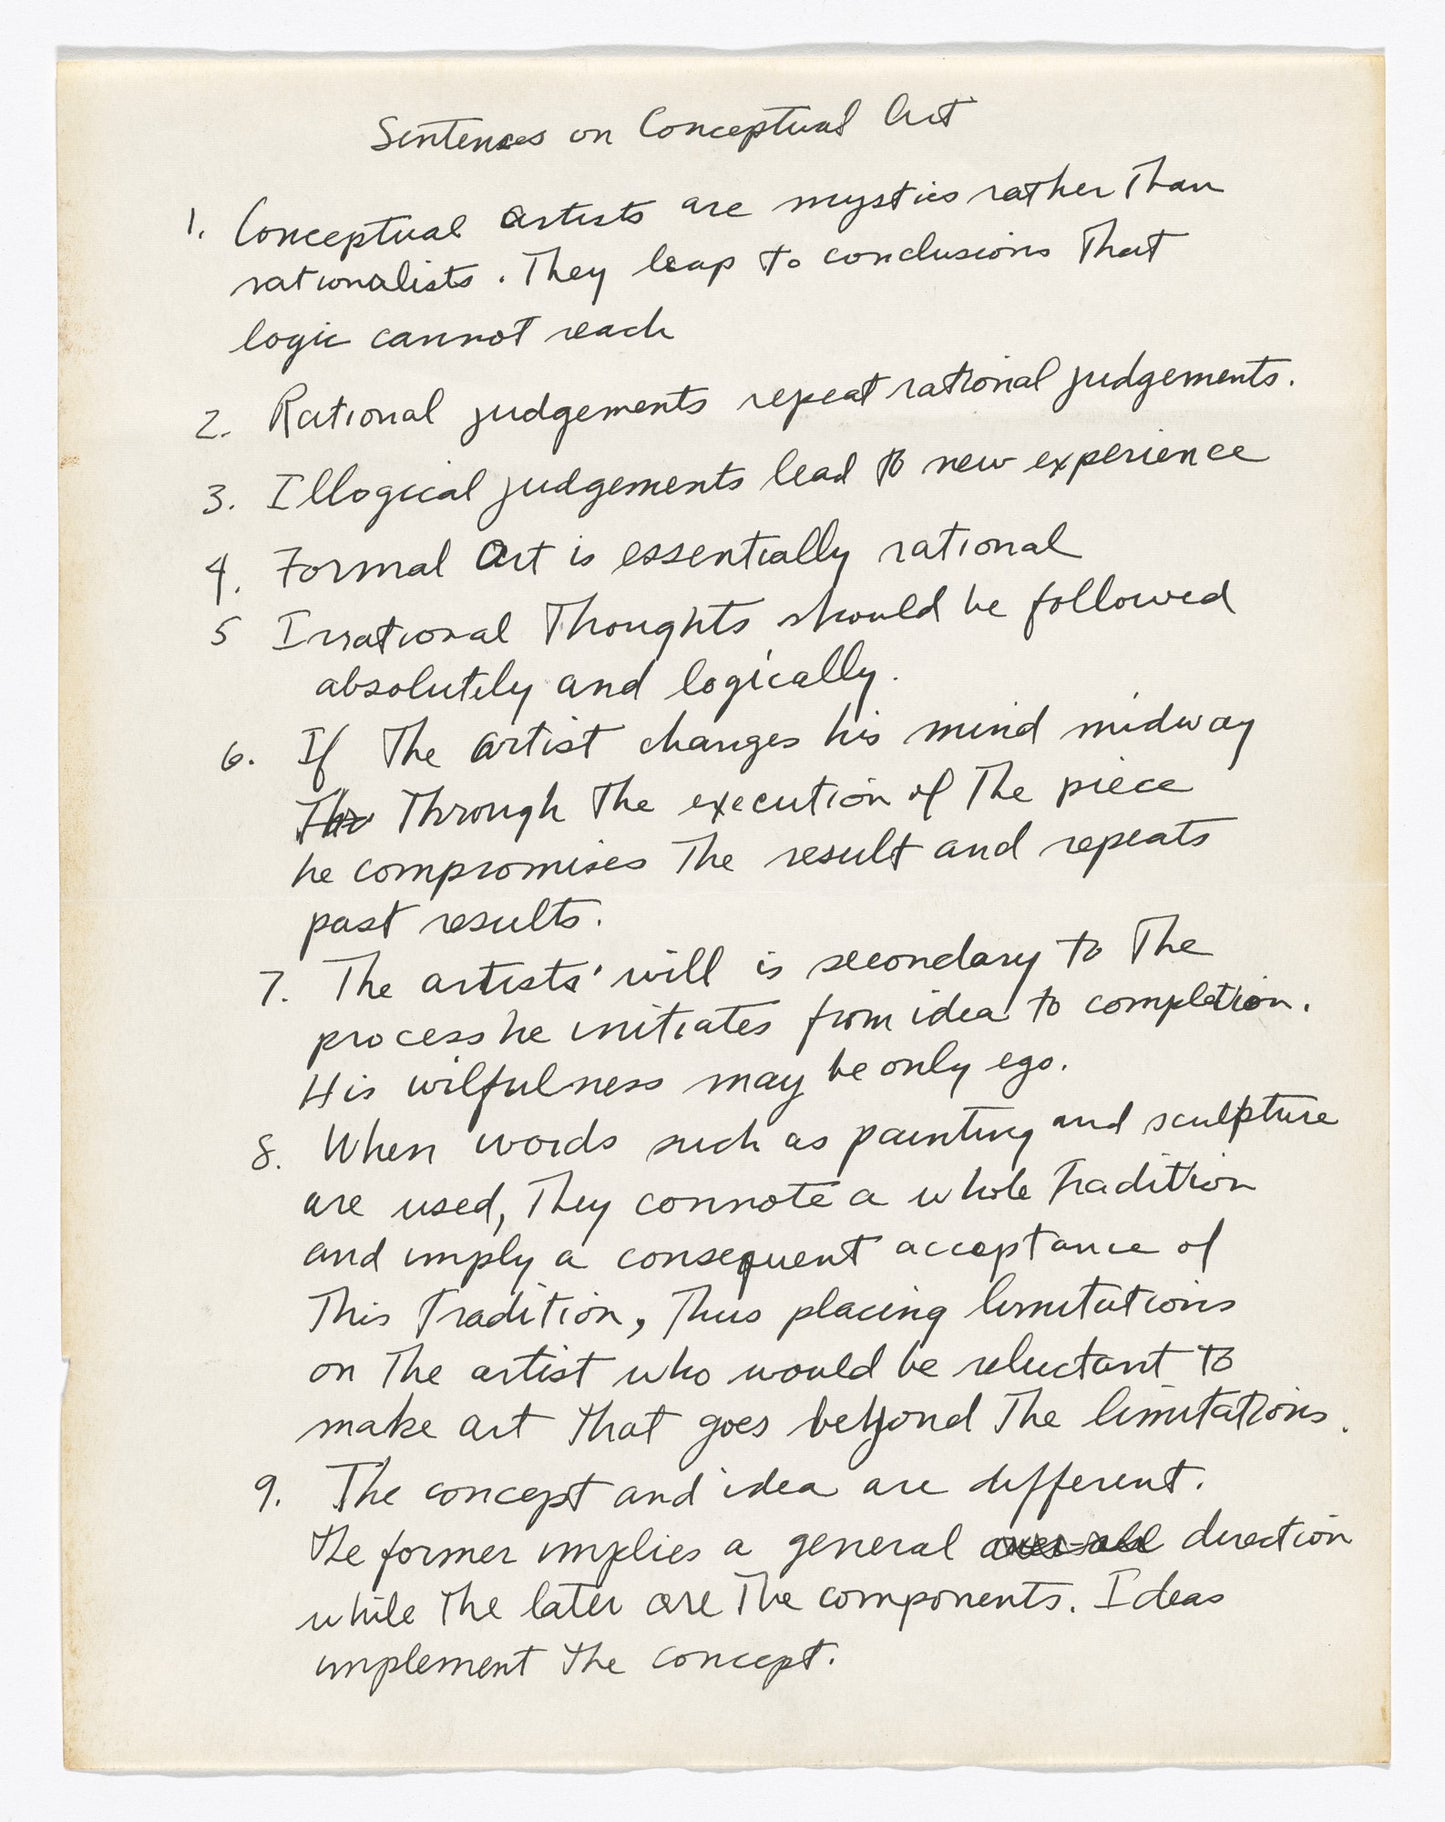 Sentences on Conceptual Art
1. Conceptual artists are mystics rather than
rationalists. They leap to conclusions that
logic cannot reach
2. Rational judgements repeat rational judgements.
3. Illogical judgements lead to new experience
4. Formal Art is essentially rational
5 Irrational Thoughts should be followed
absolutely and logically.
6. If The artist changes his mind midway
Thr Through The execution of The piece
he compromises The result and repeats
past results.
7. The artists' will is secondary to The
process he initiates from idea to completion.
His wilfulness may be only ego.
8. When words such as painting and sculpture
are used, They connote a whole Tradition
and imply a consequent acceptance of
This Tradition, Thus placing limitations
on The artist who would be reluctant to
make art that goes beyond The limitations.
9. The concept and idea are different.
The former implies a general over-all direction
while The later are The components. Ideas
implement the concept.